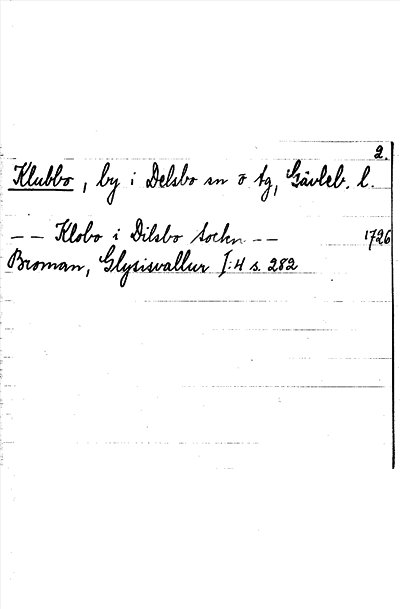 2.
Klubbo, by i Delsbo sn o tg, Gävleb. l.
-- Klobo i Dilsbo sockn -- 1726
Broman, Glysisvallur I:4 s. 282